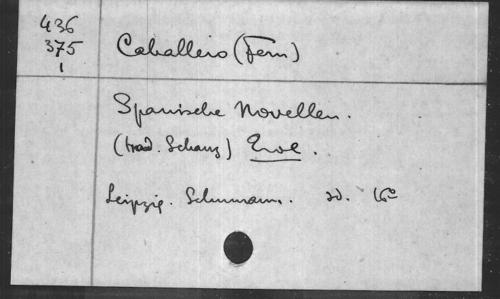 436
375
1
Caballero (Fern)
Spanische Novellen.
(trad. Schanz)
Leipzig. Schumann. sd. 16º